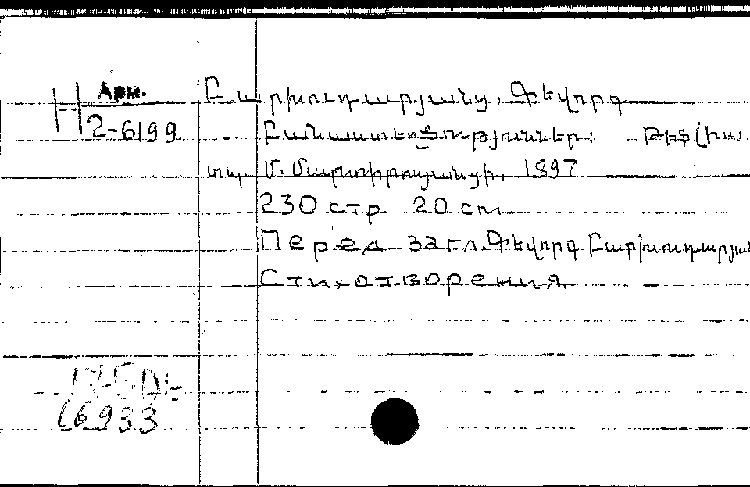 Арм.
Н 2-6199
Բարխուդարյանց, Գեվորգ
Բանաստեղծություններ. Թիֆլիս,
տպ. Մ. Մարտիրոսյանցի, 1897
230 стр 20 см
Перед загл. Գեվորգ Բարխուդարյան
Стихотворения.
16933